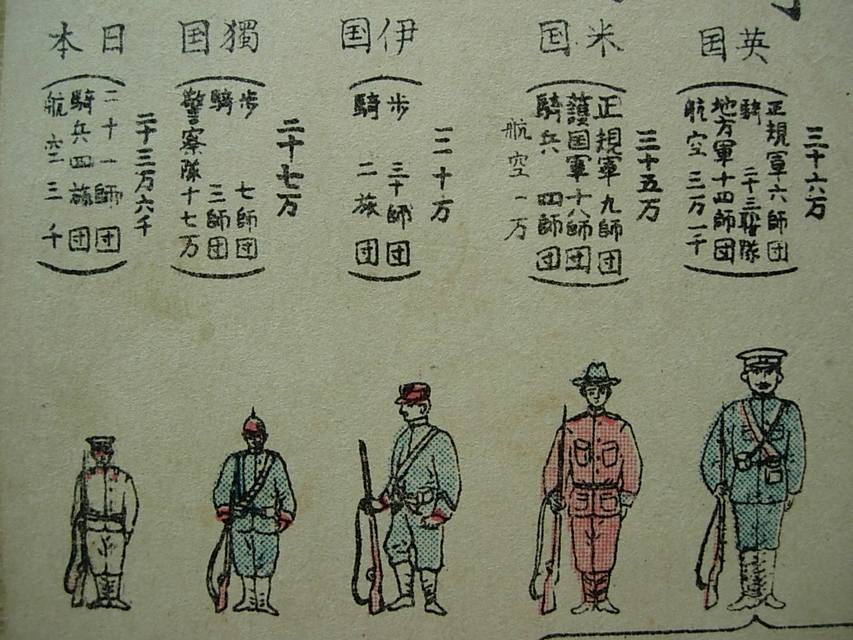 英国
三十六万
(正規軍六師団
騎 二十三聯隊
地方軍十四師団
航空 三万一千)
米国
三十五万
(正規軍九師団
護国軍十八師団
騎兵 四師団
航空 一万)
伊国
三十万
(歩 三十師団
騎 二旅団)
獨国
二十七万
(歩 七師団
騎 三師団
警察隊十七万)
日本
二十三万六千
(二十一師団
騎兵四旅団
航空三千)